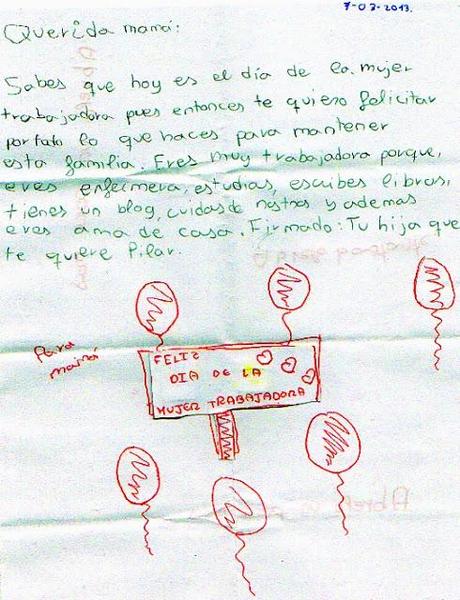 7-03-2013.
Querida mamá:
Sabes que hoy es el día de la mujer
trabajadora pues entonces te quiero felicitar
por todo lo que haces para mantener
esta familia. Eres muy trabajadora porque,
eres enfermera, estudias, escribes libros,
tienes un blog, cuidas de nostros y ademas
eres ama de casa. Firmado: Tu hija que
te quiere Pilar.
Para
mamá
FELIZ
DIA DE LA
MUJER TRABAJADORA